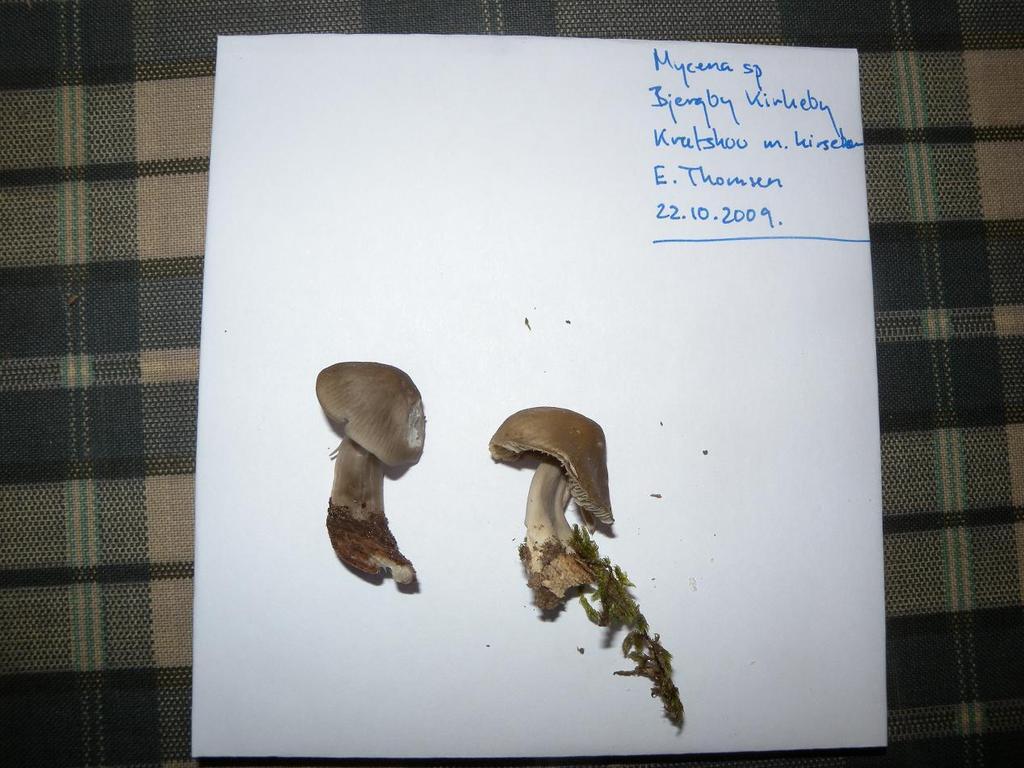 Mycena sp
Bjergby Kirkeby
Kratskov m.
E. Thomsen
22.10.2009.